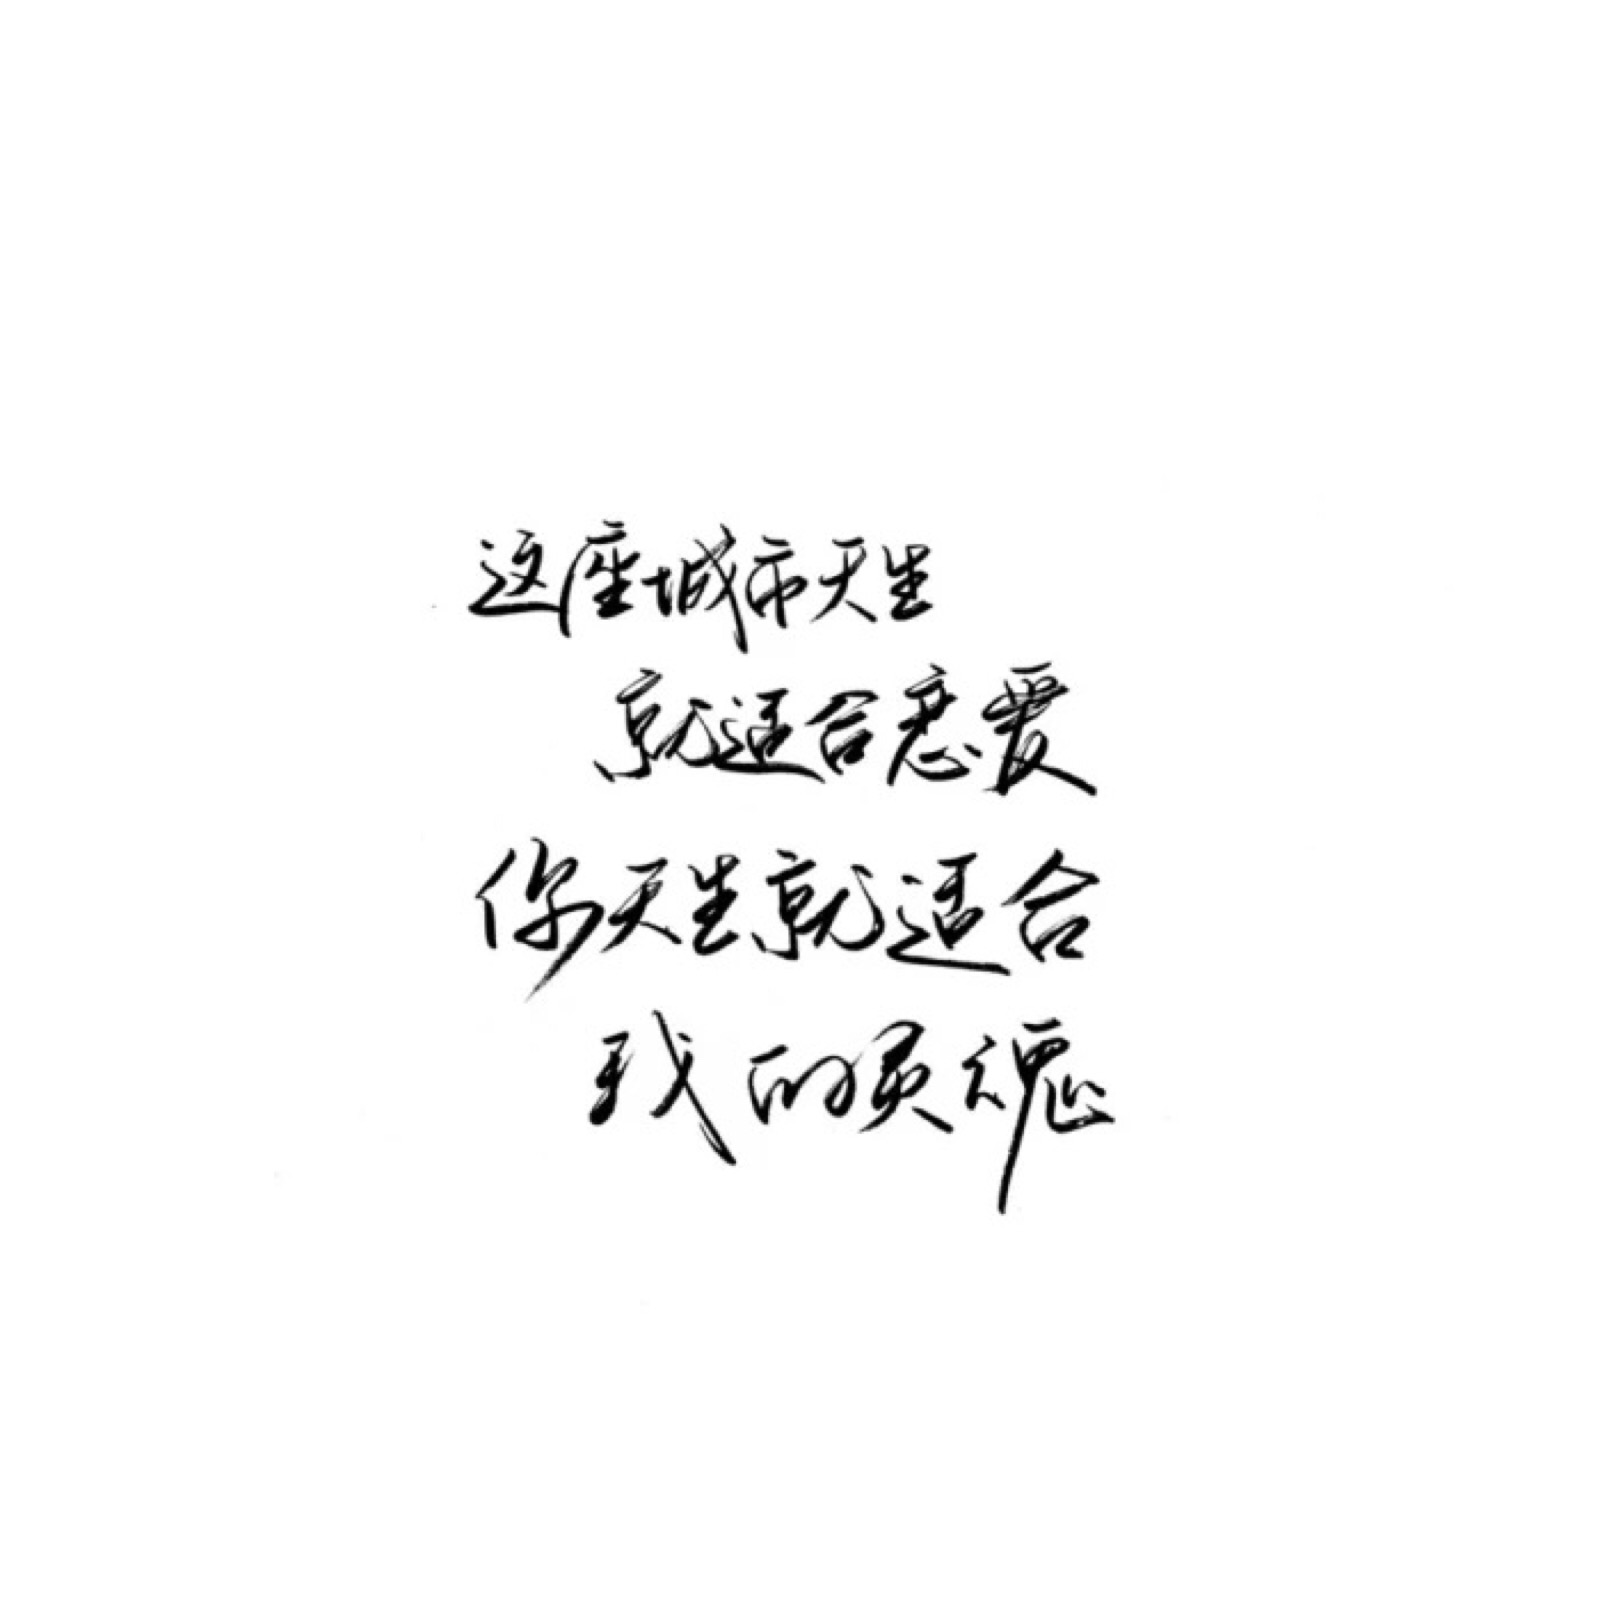 这座城市天生
就适合恋爱
你天生就适合
我的灵魂